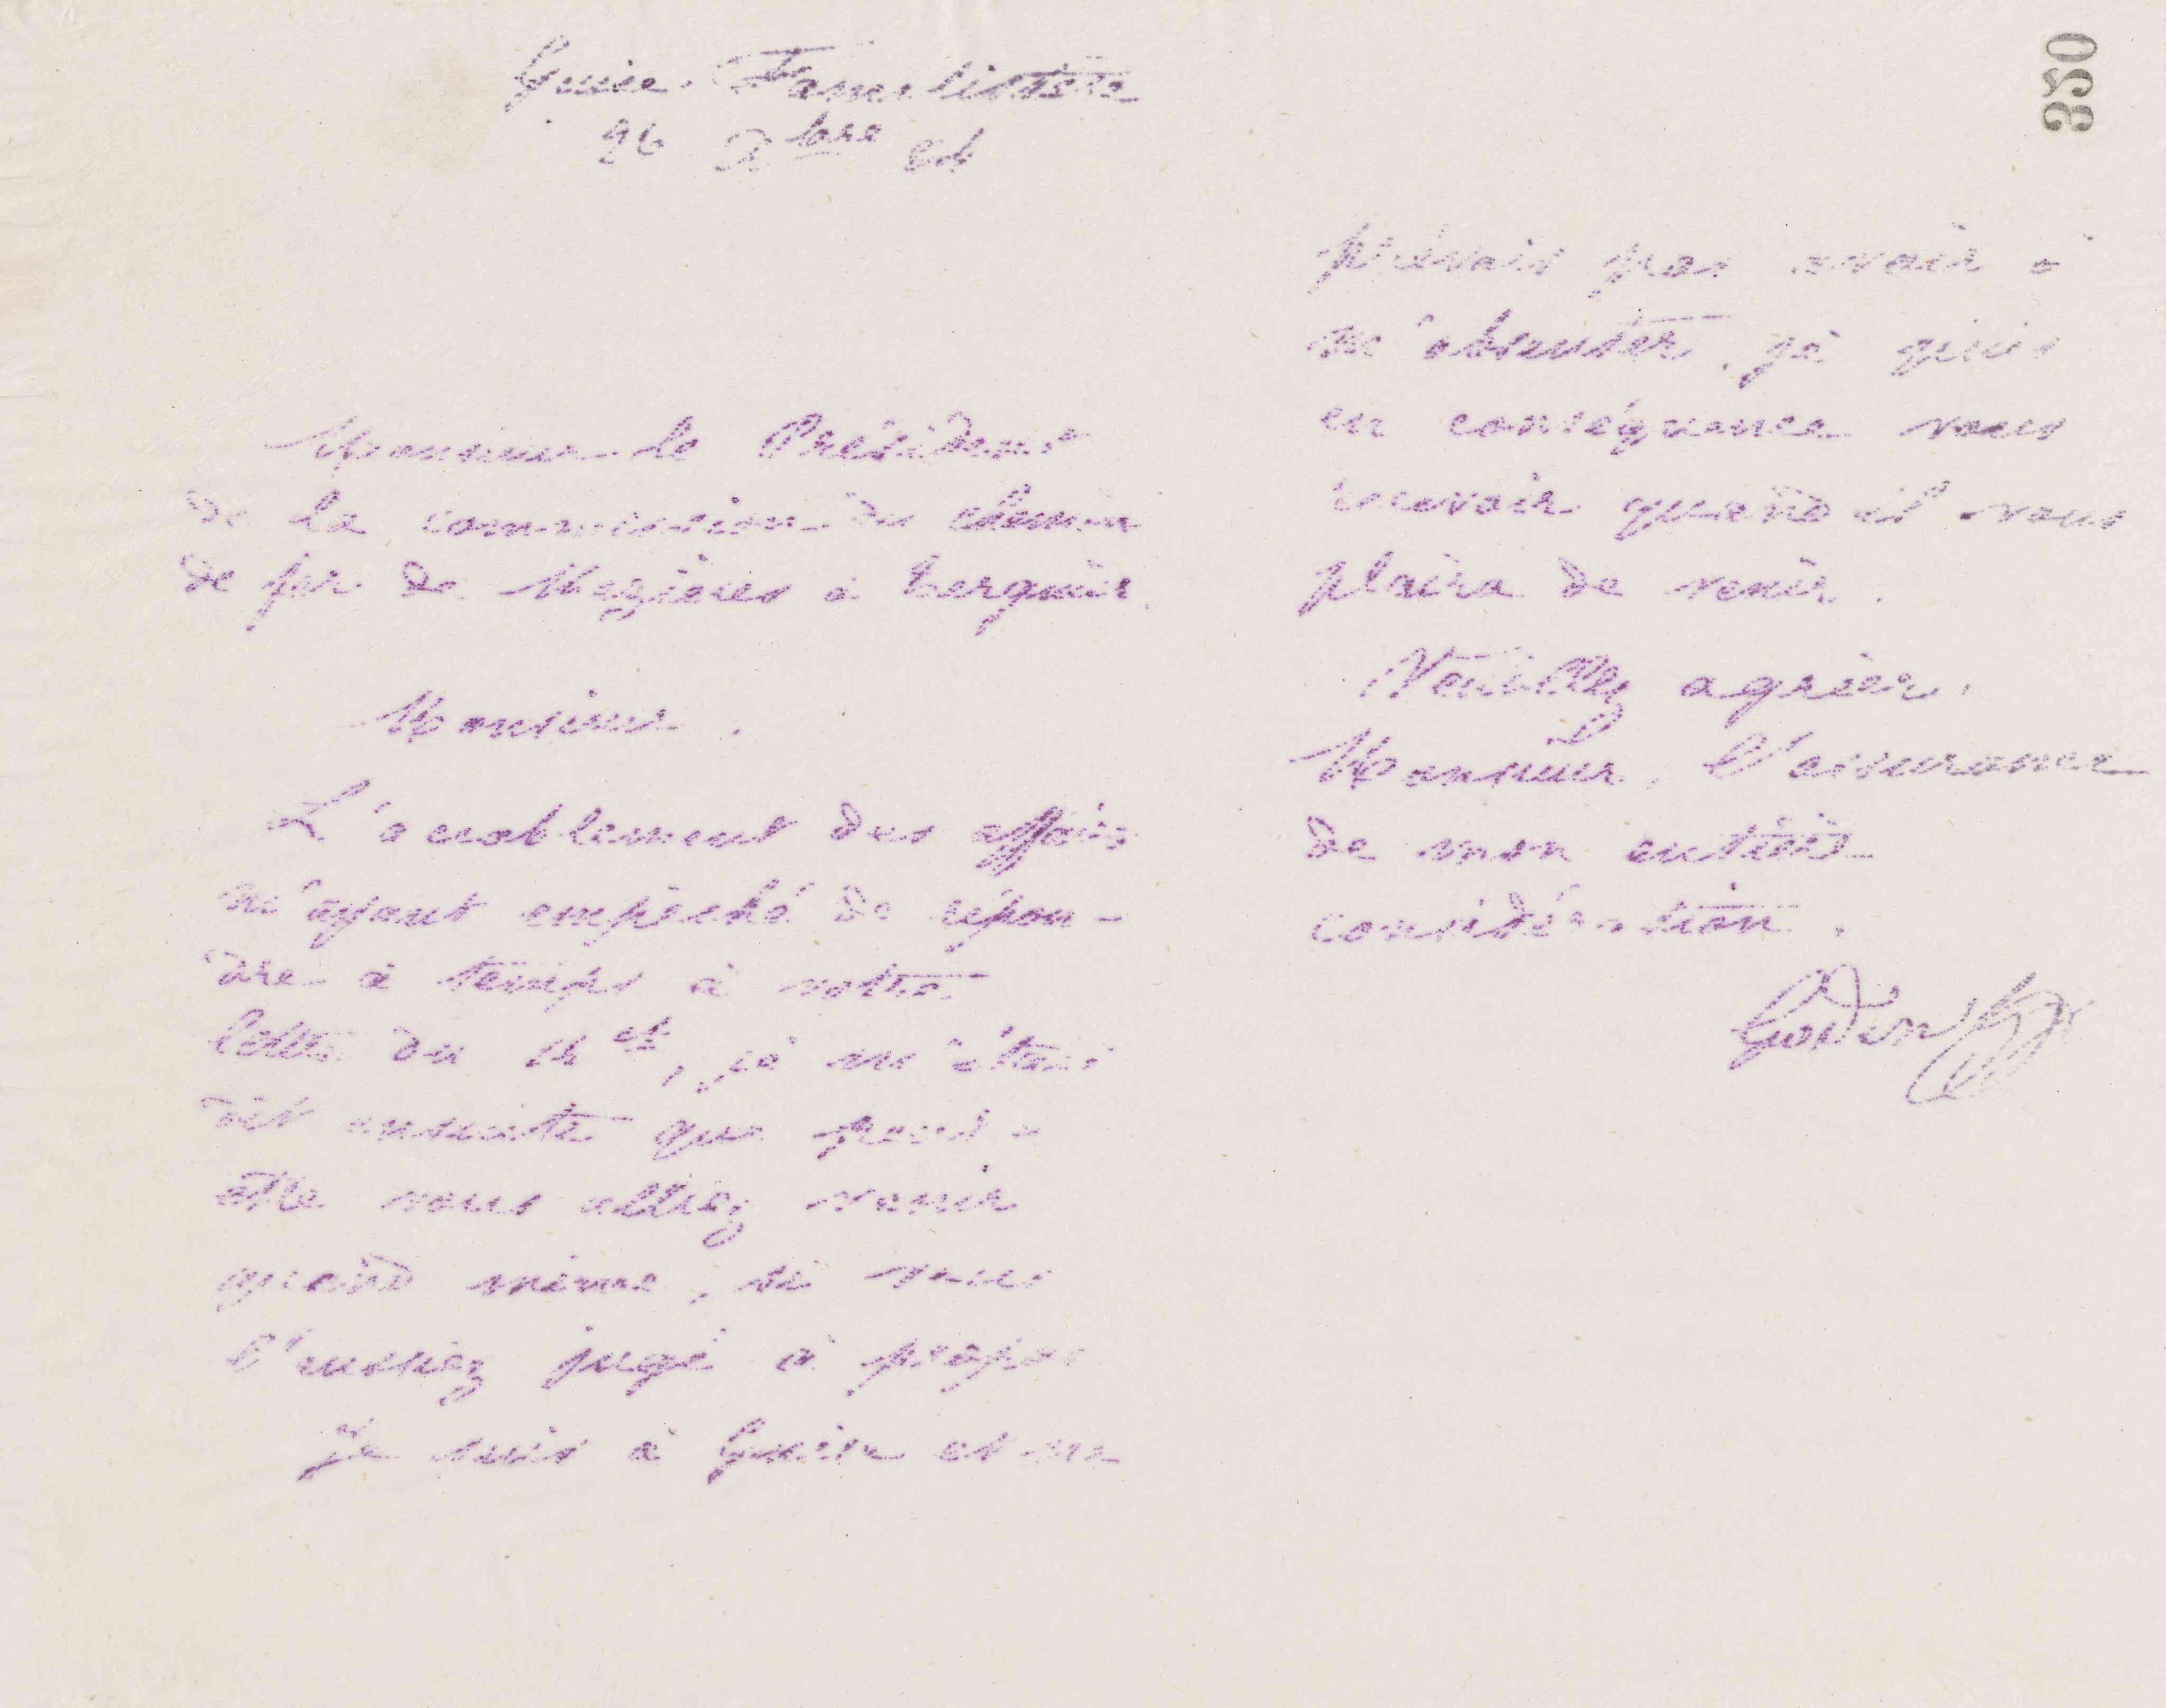 350
Guise. Familistère
26 Xbre 84
Monsieur le Président
de la commission du chemin
de fer de Mezières à Tergnier.
Monsieur.
L'accablement des affaires
m'ayant empêché de répon-
dre à temps à votre
lettre du 14 ct, je m'étais
dit ensuite que peut-
être vous alliez venir
quand même, si vous
l'eussiez jugé à propos
Je suis à Guise et ne
prévois pas avoir à
m'absenter. Je puis
en conséquence vous
recevoir quand il vous
plaira de venir.
Veuillez agréer,
Monsieur, l'assurance
de mon entière
considération.
Godin